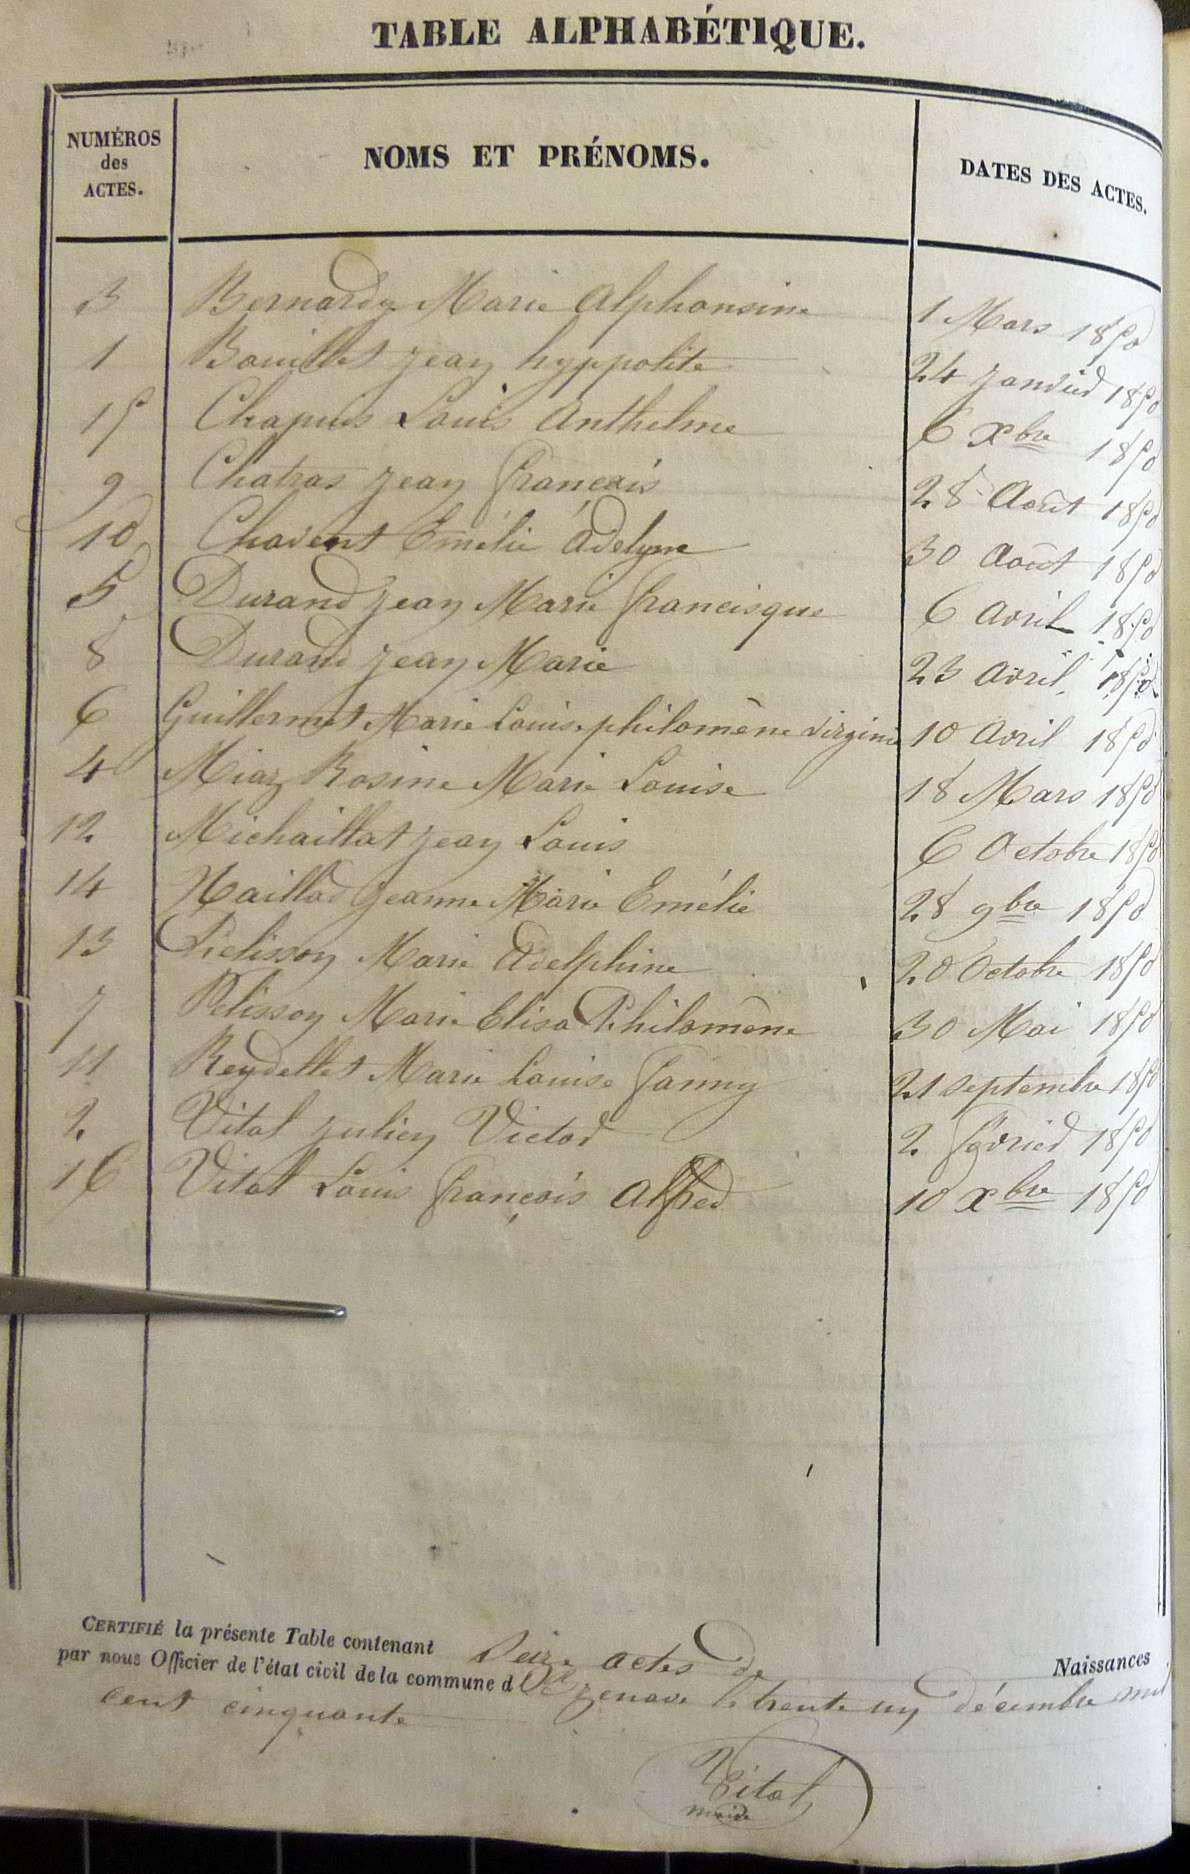 TABLE ALPHABÉTIQUE.
NUMÉROS des ACTES. NOMS ET PRÉNOMS. DATES DES ACTES.
3 Bernardy Marie Alphonsine 1 Mars 1850
1 Bouillet jean hyppolite 24 janvier 1850
15 Chapuis Louis Anthelme 6 Xbre 1850
9 Chatras jean francois 28 Août 1850
10 Chavent Emélie Adelyne 30 Août 1850
5 Durand jean Marie francisque 6 Avril 1850
8 Durand jean Marie 23 Avril 1850
6 Guillermet Marie Louise philomène virginie 10 Avril 1850
4 Miaz Rosine Marie Louise 18 Mars 1850
12 Michaillat jean Louis 6 Octobre 1850
14 Naillod jeanne Marie Emélie 28 9bre 1850
13 Pelisson Marie Adelphine 20 Octobre 1850
7 Pelisson Marie Elisa Philomène 30 Mai 1850
11 Reydellet Marie Louise fanny 21 septembre 1850
2 Vital julien Victor 2 février 1850
16 Vital Louis françois Alfred 10 Xbre 1850
CERTIFIÉ la présente Table contenant Seize actes de Naissances
par nous Officier de l'état civil de la commune d le trente un décembre mil
cent cinquante
Vital
maire